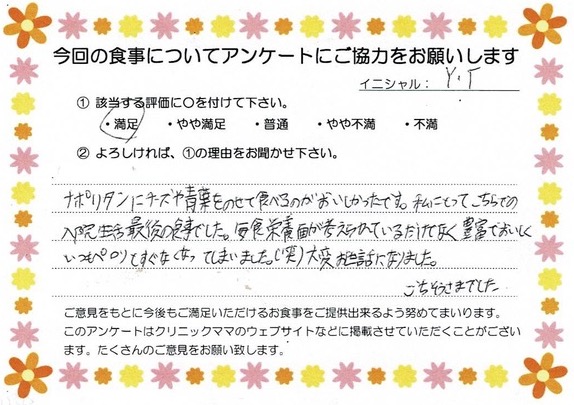 今回の食事についてアンケートにご協力をお願いします
イニシャル： Y.T
① 該当する評価に〇を付けて下さい。
・満足 ・やや満足 ・普通 ・やや不満 ・不満
② よろしければ、①の理由をお聞かせ下さい。
ナポリタンにチーズや青葉をのせて食べるのがおいしかったです。私にとってこちらでの
入院生活最後の食事でした。毎食栄養面が考えられているだけでなく豊富でおいしく
いつもペロリとすぐなくなってしまいました。(笑)大変お世話になりました。
ごちそうさまでした
ご意見をもとに今後もご満足いただけるお食事をご提供出来るよう努めてまいります。
このアンケートはクリニックママのウェブサイトなどに掲載させていただくことがござい
ます。たくさんのご意見をお願い致します。